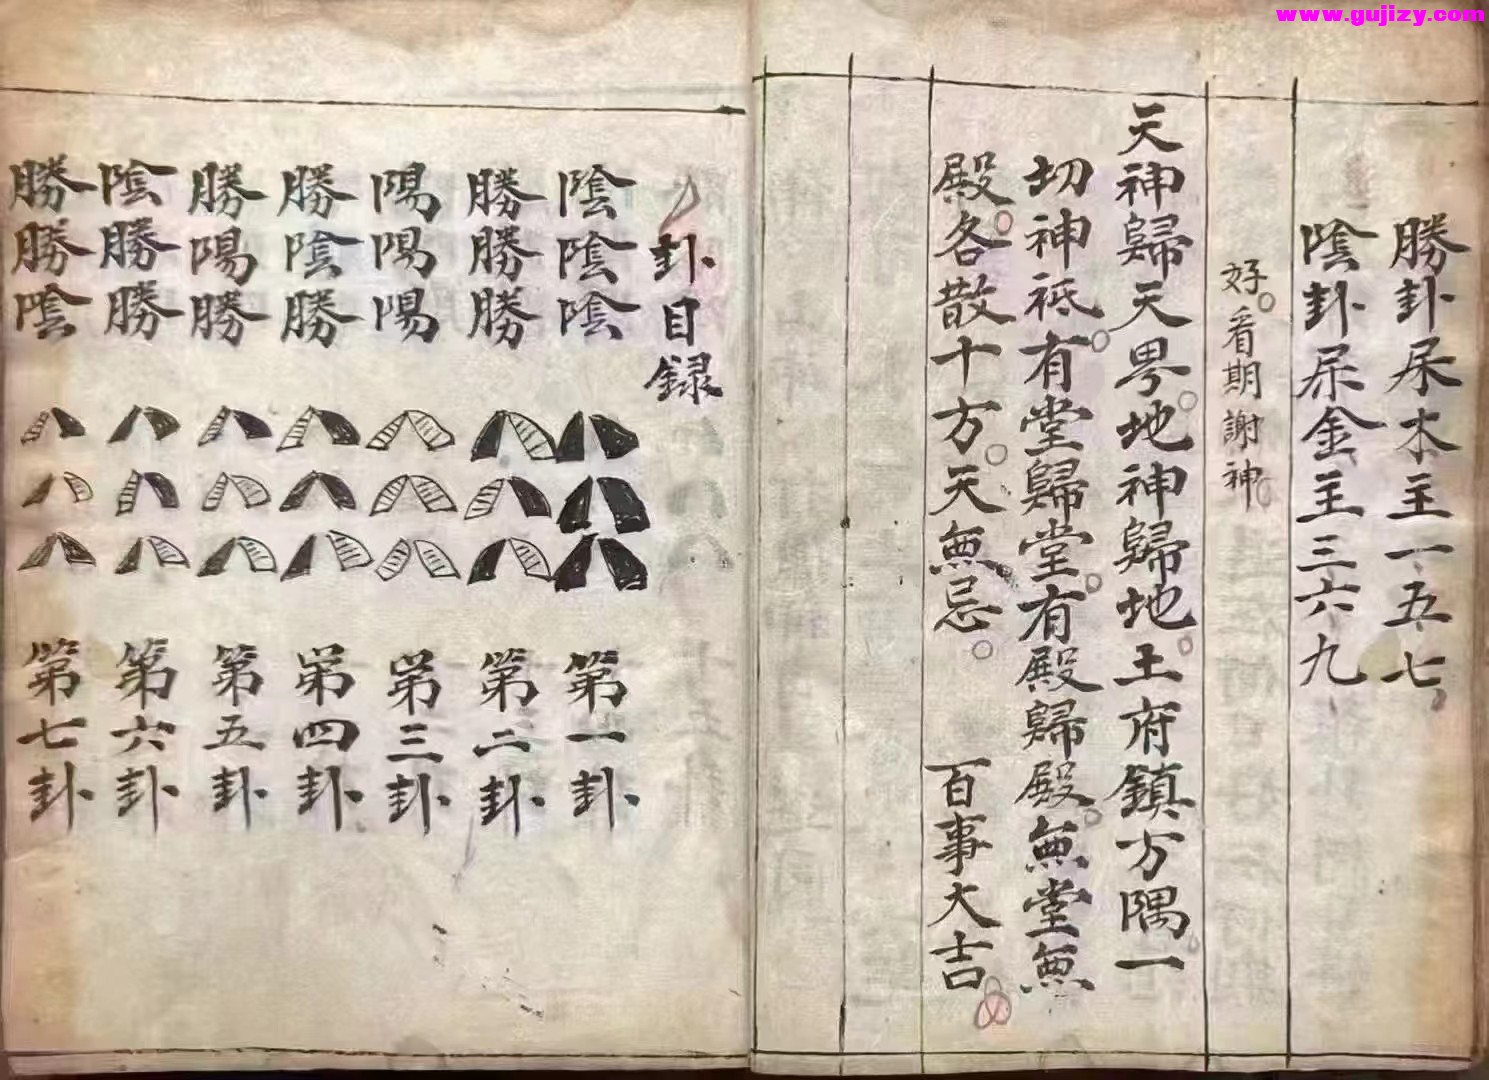 勝卦木主一五七
陰卦金主三六九
好。看期謝神。
天神歸天界。地神歸地。土府鎮方隅。一
切神祗。有堂歸堂。有殿歸殿。無堂無
殿。各散十方。天無忌。 百事大吉
卦目録
陰陰陰 第一卦
勝勝勝 第二卦
陽陽陽 第三卦
勝陰勝 第四卦
勝陽勝 第五卦
陰勝勝 第六卦
勝勝陰 第七卦
www.gujizy.com